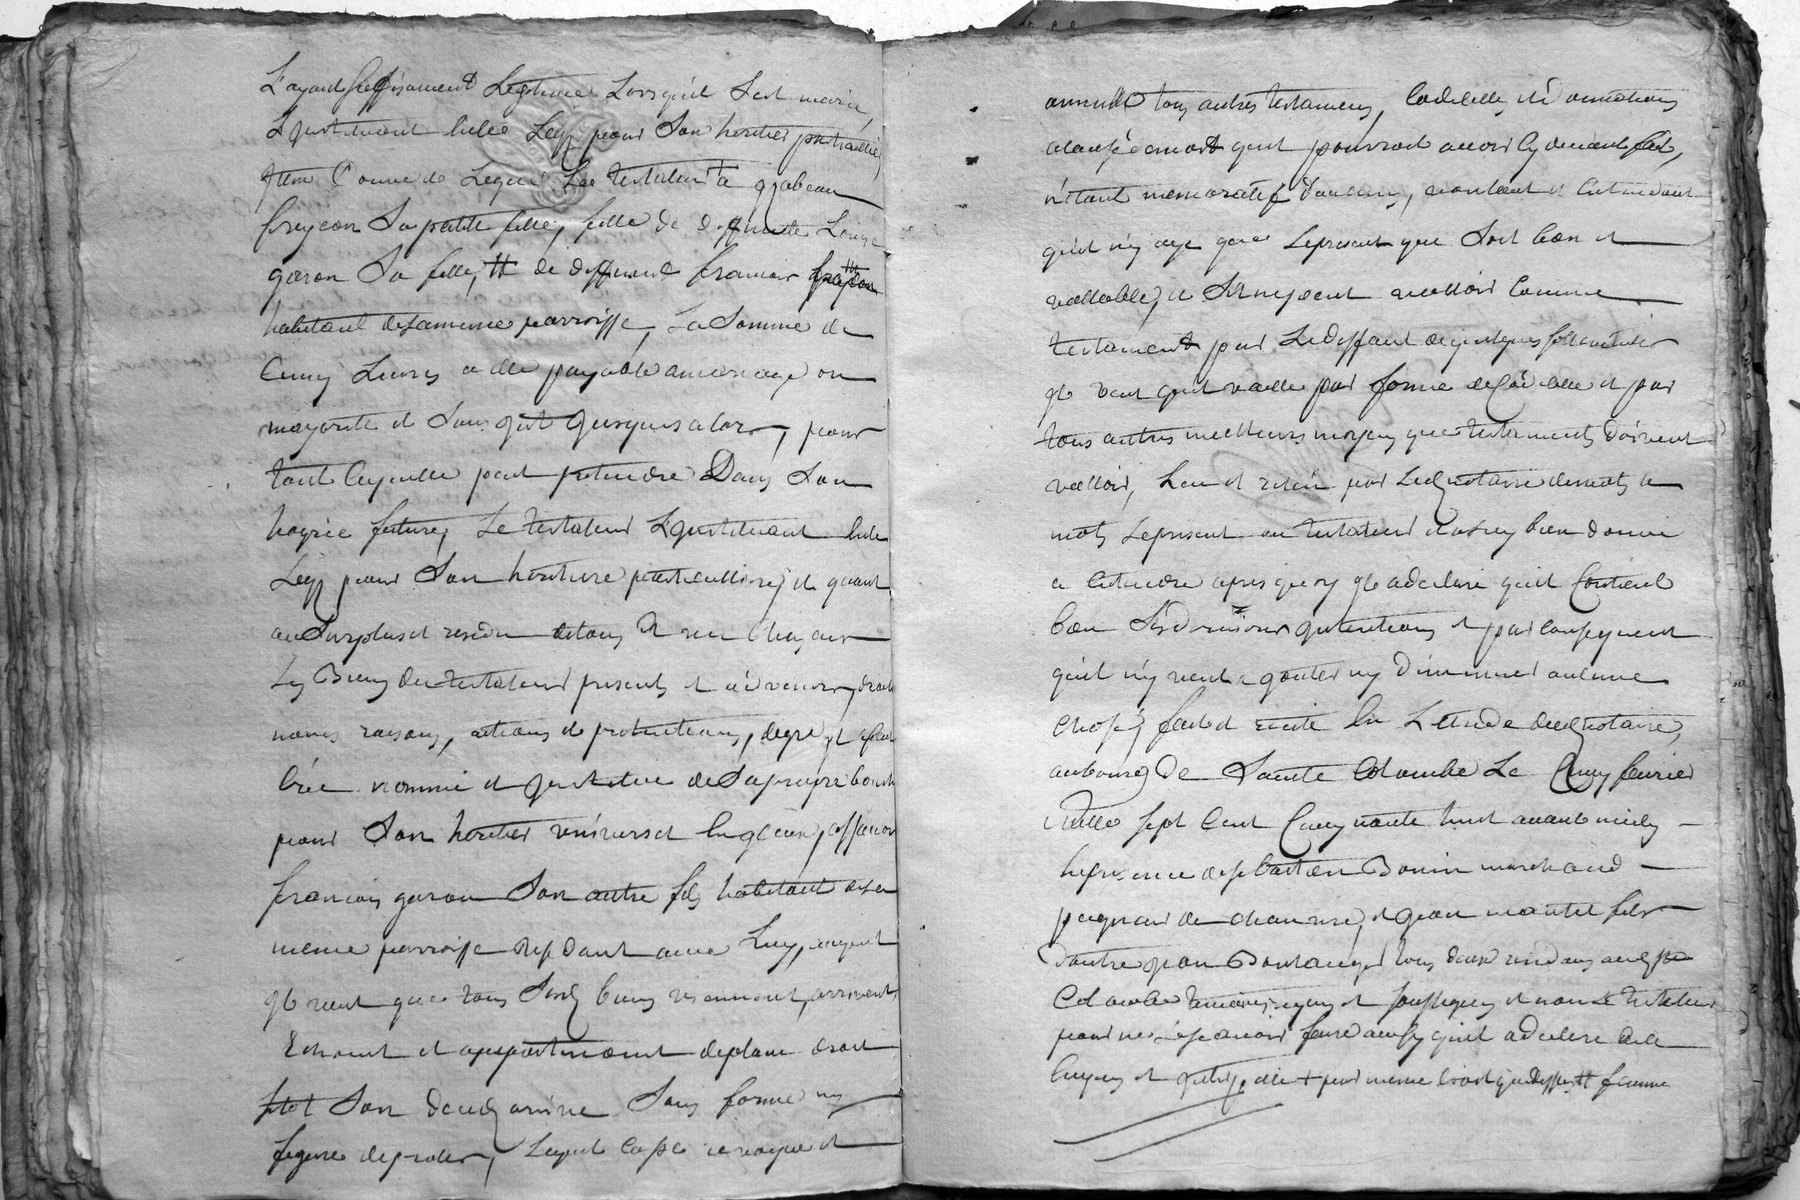 L'ayant suffisament Legitimé Lorsquil s'est marié,
L'jnstituant audit Legs pour Son heritier particullier,
Jtem donne et Legue Led testateur a jzabeau
freycon Sa petite fille, fille de deffuncte Louize
garon Sa fille, # de deffunct francois
habitant de Lameme parroisse, La Somme de
Cinq Livres a elle payable a mariage ou
majorité et Sans jnt jusques alors, pour
tout ce quelle peut pretendre Dans Son
hoyrie future, Le testateur L'jnstituant audit
Legs pour Son heritiere particulliere, et quant
au Surplus et residu de tous et un chacuns
Les Biens du testateur presents et advenir, droits
noms raisons, actions et pretentions, de gré
crée nommé et jnstitué de Sa propre bouche
pour Son heritier universel
francois garon Son autre fils habitant de La
meme parroisse residant avec Luy, auquel
jl veut que tous Sesd biens viennent, arrivent
Echoient et appartiennent de plain droit
Sitot Son deces arrivé Sans forme ny
figure de proces, Lequel casse revoque et
annulle tous autres testamens, Codicilles et donnations
a cause de mort quil pourroit avoir cy devant fait,
n'etant memoratif d'aucuns, voulant et Entendant
quil n'y aye que Le present que Soit bon et
vallable, et Sil ne peut valloir comme
testament par Le deffaut de quelques sollemnités
jl veut quil vaille par forme de Codicille et par
tous autres meilleurs moyens que testaments doivent
valloir, Leu et relu par Led notaire de mots a
mots Le present au testateur et a luy bien donné
a Entendre apres quoy jl a declaré quil Contient
bien Ses dernieres jntentions et par consequent
quil n'y veut ajouter ny diminuer aucune
chose, fait et recité En L'Etude dud notaire,
au bourg de Sainte Colombe Le Cinq fevrier
Mille Sept Cent Cinquante huit avant midy
En presence de Sebastien Bonin marchand
peigneur de chanvre, et jean mantel fils
d'autre jean Boulanger tous deux residans aud Ste
Colombe temoins requis et soussignez et non Le testateur
pour ne scavoir faire ainsy quil a declaré de ce
Enquis et jnterpellé + par meme droit que dessus # femme